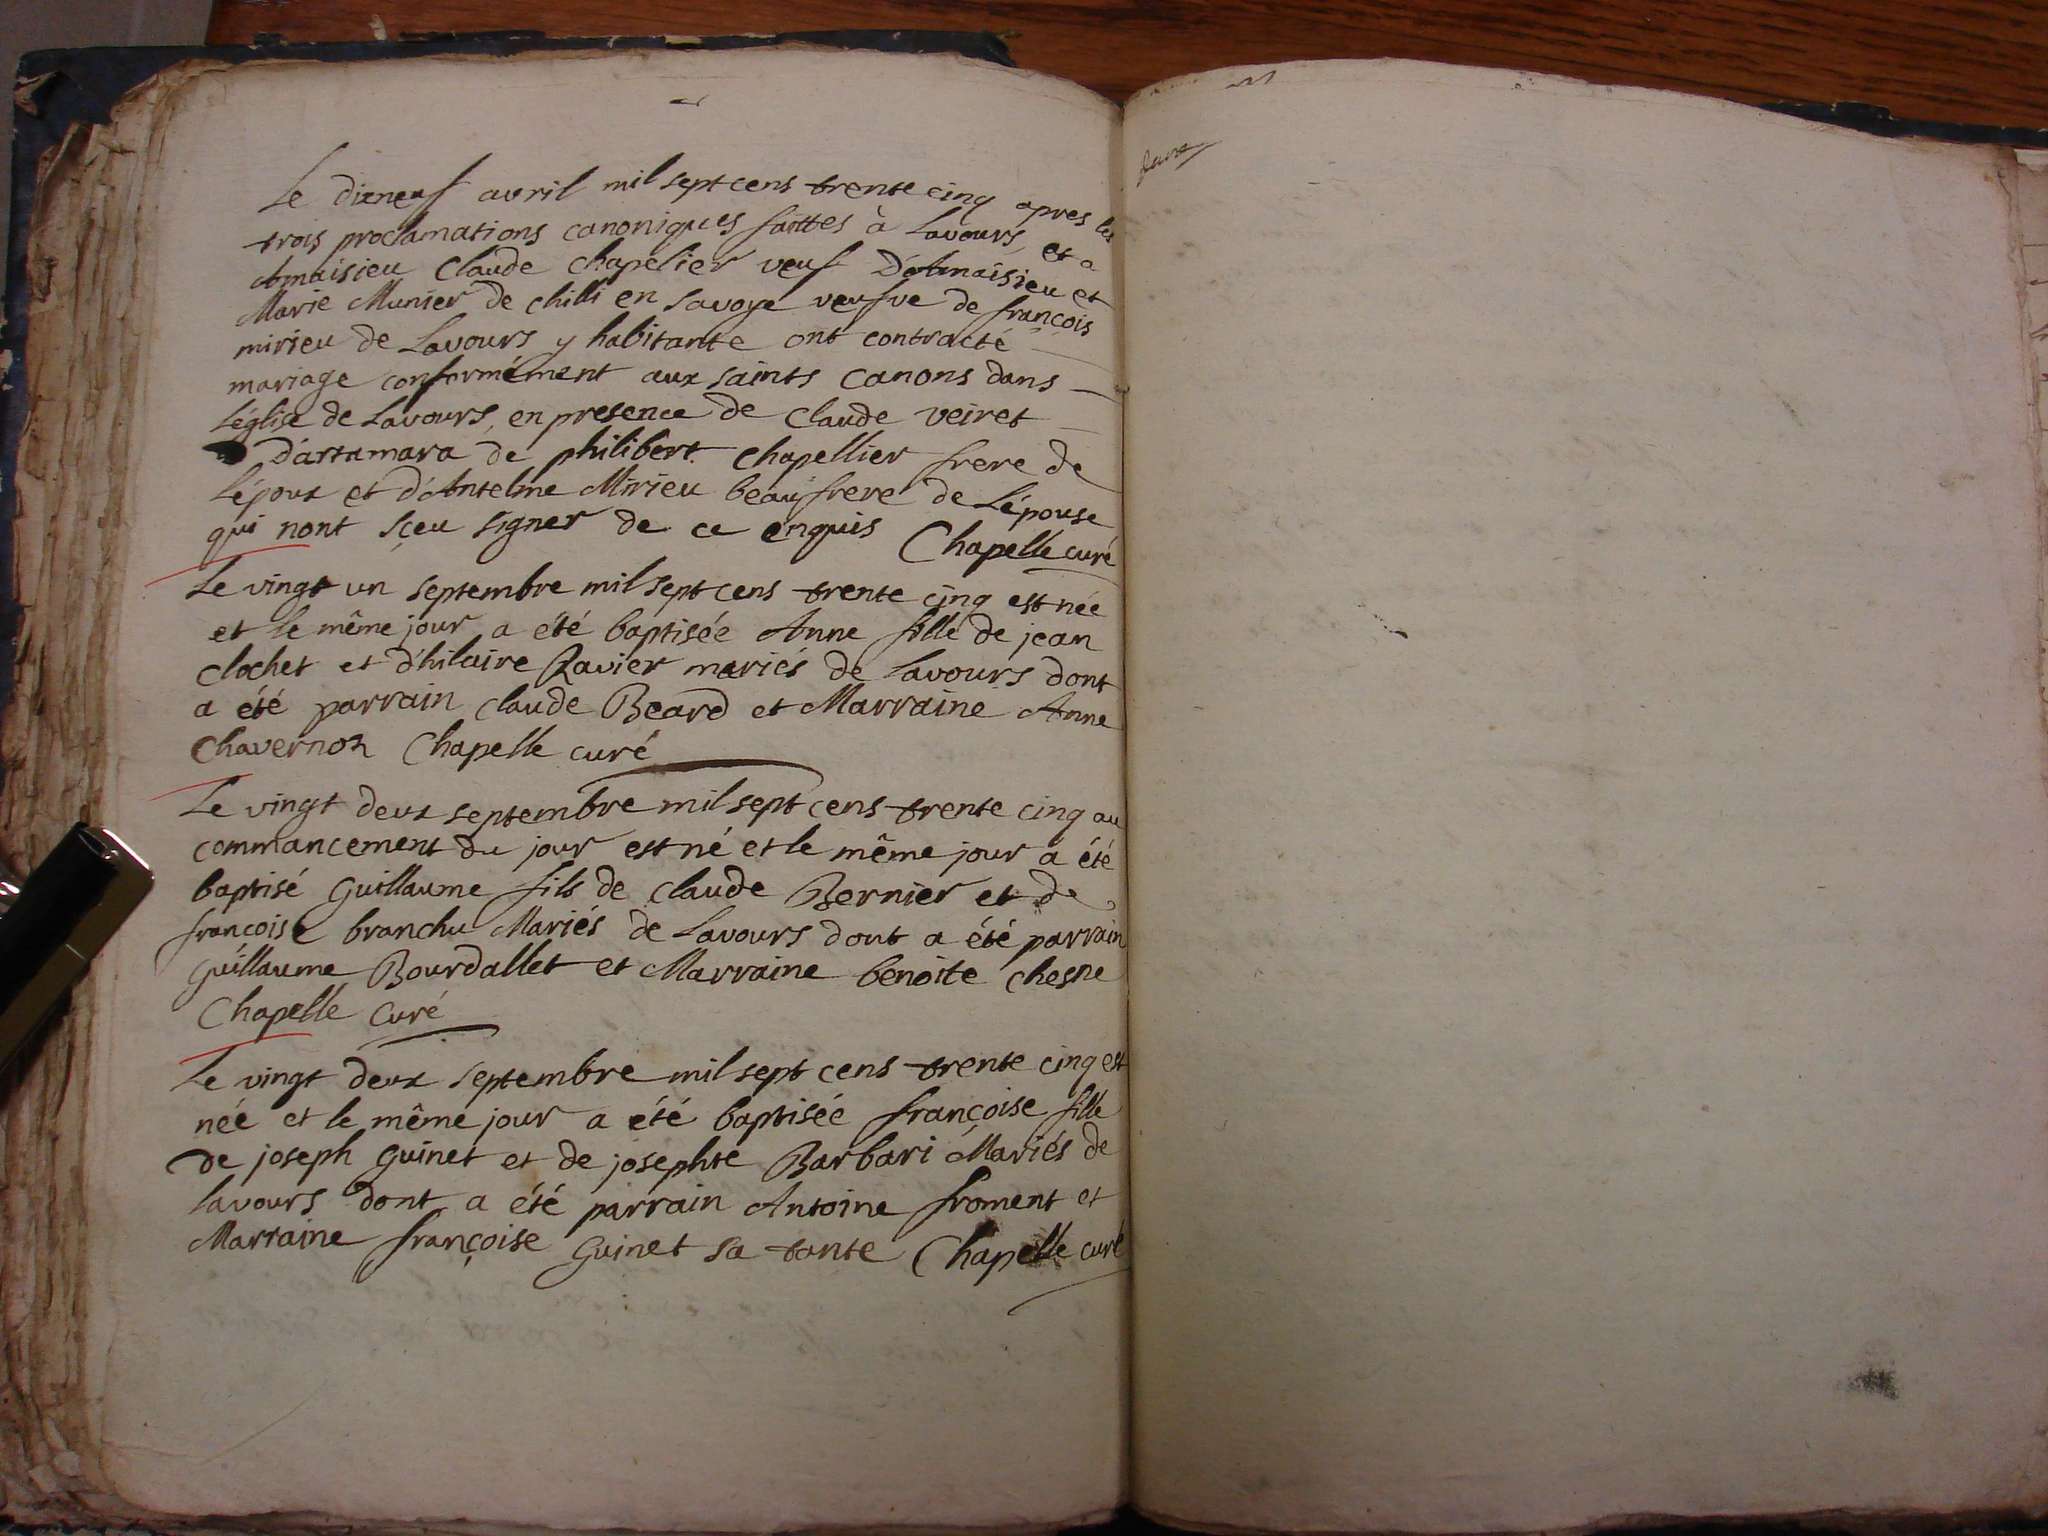 Le dixneuf avril mil sept cens trente cinq apres les
trois proclamations canoniques faittes à Lavours, et a
Amaisieu Claude Chapelier veuf D'Amaisieu et
Marie Munier de chilli en savoye veufve de françois
mirieu de Lavours y habitante ont contracté
mariage conformément aux saints canons dans
L'église de Lavours, en presence de Claude veiret
D'artamara de philibert chapellier frere de
L'époux et d'Antelme Mirieu beaufrere de L'épouse
qui nont sçeu signer de ce enquis Chapelle curé
Le vingt un septembre mil sept cens trente cinq est née
et le même jour a été baptisée Anne fille de jean
clochet et d'hilaire Ravier mariés de Lavours dont
a été parrain claude Beard et Marraine Anne
Chavernon Chapelle curé
Le vingt deux septembre mil sept cens trente cinq au
commancement du jour est né et le même jour a été
baptisé Guillaume fils de claude Bernier et de
francoise branchu Mariés de Lavours dont a été parrain
Guillaume Bourdallet et Marraine benoite chesne
Chapelle Curé
Le vingt deux septembre mil sept cens trente cinq est
née et le même jour a été baptisée françoise fille
De joseph Guinet et de josephte Barbari Mariés de
lavours dont a été parrain Antoine froment et
Marraine françoise Guinet sa tante Chapelle curé